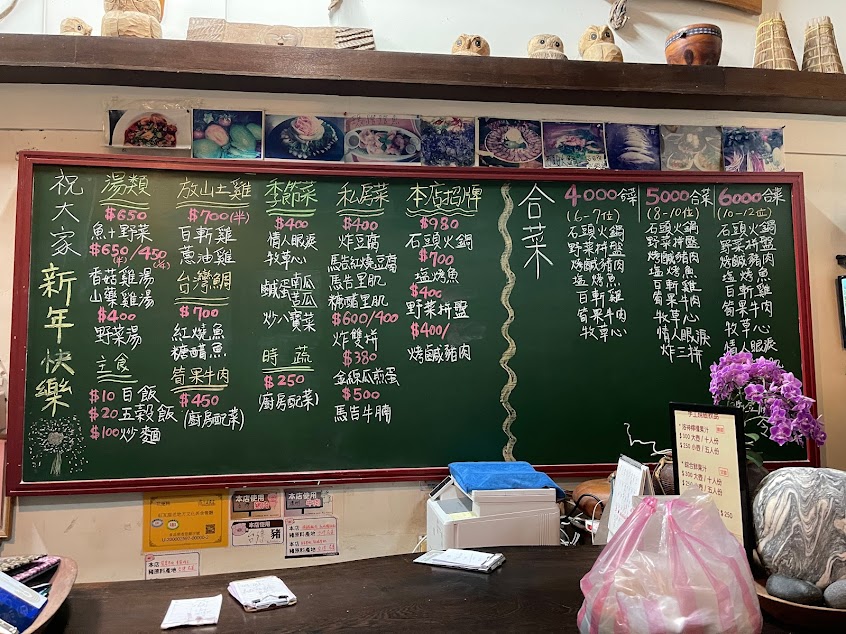 祝大家
新年快樂
湯類
$650
魚+野菜
$650/450
(半) (¼)
香菇雞湯
山藥雞湯
$400
野菜湯
主食
$10 白飯
$20 五穀飯
$100 炒麵
放山土雞
$700(半)
百斬雞
蔥油雞
台灣鯛
$700
紅燒魚
糖醋魚
筍果牛肉
$450
(廚房配菜)
季節菜
$400
情人眼淚
牧草心
鹹蛋南瓜
苦瓜
炒八寶菜
時蔬
$250
(廚房配菜)
私房菜
$400
炸豆腐
馬告紅燒豆腐
馬告里肌
糖醋里肌
$600/400
炸雙拼
$380
金絲瓜煎蛋
$500
馬告牛腩
本店招牌
$980
石頭火鍋
$700
塩烤魚
$400
野菜拼盤
$400/
烤鹹豬肉
合菜
4000合菜
(6-7位)
石頭火鍋
野菜拼盤
烤鹹豬肉
塩烤魚
百斬雞
筍果牛肉
牧草心
5000合菜
(8-10位)
石頭火鍋
野菜拼盤
烤鹹豬肉
塩烤魚
百斬雞
筍果牛肉
牧草心
情人眼淚
炸三拼
6000合菜
(10-12位)
石頭火鍋
野菜拼盤
烤鹹豬肉
塩烤魚
百斬雞
筍果牛肉
牧草心
情人眼淚
本店使用
本店使用
本店使用
豬
本店
豬原料產地
本店
豬原料產地